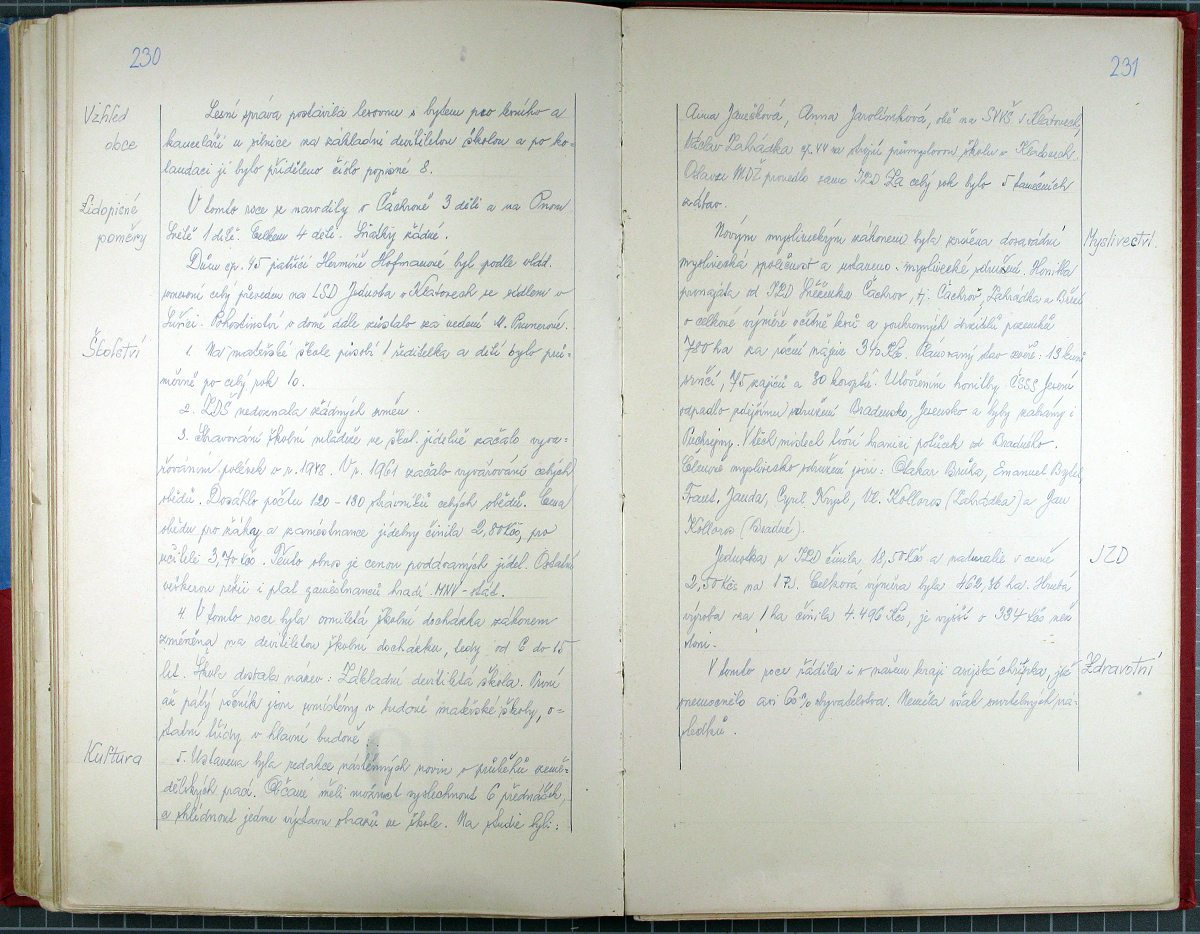 230
Vzhled
obce
Lesní správa postavila lesovnu s bytem pro lesního a
kanceláří u silnice na základní devítiletou školou a po ko-
laudaci jí bylo přiděleno číslo popisné 8.
Lidopisné
poměry
V tomto roce se narodily v Čachrově 3 děti a na
1 dítě. Celkem 4 děti. Sňatky žádné.
Dům čp. 45 patřící Hermíně Hofmanové byl podle vlád.
usnesení celý převeden na LSD Jednota v Klatovech se sídlem v
Sušici. Pohostinství v domě dále zůstalo za vedení M.
Školství
1. Na mateřské škole působí 1 ředitelka a dětí bylo prů-
měrně po celý rok 10.
2. ZDŠ nedoznala žádných změn.
3. Stravování školní mládeže ve škol. jídelně začalo vyva-
řováním polévek v r. 1948. V r. 1961 začalo vyvařování celých
obědů. Dosáhlo počtu 120 - 130 strávníků celých obědů. Cena
obědu pro žáky a zaměstnance jídelny činila 2,80 Kčs, pro
učitele 3,70 Kčs. Tento obnos je cenou podávaných jídel. Ostatní
veškerou režii i plat zaměstnanců hradí MNV - stát.
4. V tomto roce byla osmiletá školní docházka zákonem
změněna na devítiletou školní docházku, tedy od 6 do 15
let. Škola dostala název: Základní devítiletá škola. První
až pátý ročník jsou umístěny v budově mateřské školy, o-
statní třídy v hlavní budově.
Kultura
5. Ustavena byla redakce nástěnných novin o průběhu země-
dělských prací. Občané měli možnost vyslechnout 6 přednášek,
a shlédnout jednu výstavu obrazů ve škole. Na studie byli:
231
Anna Janečková, Anna Jarolímková, obě na SVVŠ v Klatovech,
Václav Zahrádka čp. 44 na strojní průmyslovou školu v Klatovech.
Oslavu MDŽ provedlo samo JZD. Za celý rok bylo 5 tanečních
zábav.
Myslivectví.
Novým mysliveckým zákonem byla zrušena dosavadní
myslivecká společnost a ustaveno myslivecké sdružení. Honitba
pronajata od JZD Sněženka Čachrov, tj. Čachrov, Zahrádka a Březí
o celkové výměře včetně lesů a soukromých držitelů pozemků
780 ha za roční nájem 340 Kčs. Plánovaný stav zvěře: 13 kusů
srnčí, 75 zajíců a 30 koroptví. Utvořením honitby ČSSS Javorná
odpadlo zdejšímu sdružení Bradensko, Jesensko a kyby zabrány i
Puchejny. V těch místech tvoří hranici potůček od Bradného.
Členové mysliveckého sdružení jsou: Otakar Brůha, Emanuel
Frant. Janda, Cyril Krysl, Vl. Kolloros (Zahrádka) a Jan
Kolloros (Bradné).
JZD
Jednotka v JZD činila 18,50 Kčs a naturálie v ceně
2,50 Kčs na 1 TJ. Celková výměra byla 462,36 ha. Hrubá
výroba na 1 ha činila 4.496 Kčs, je vyšší o 334 Kčs než
loni.
Zdravotní
V tomto roce řádila i v našem kraji asijská chřipka, jíž
onemocnělo asi 60% obyvatelstva. Neměla však smrtelných ná-
sledků.